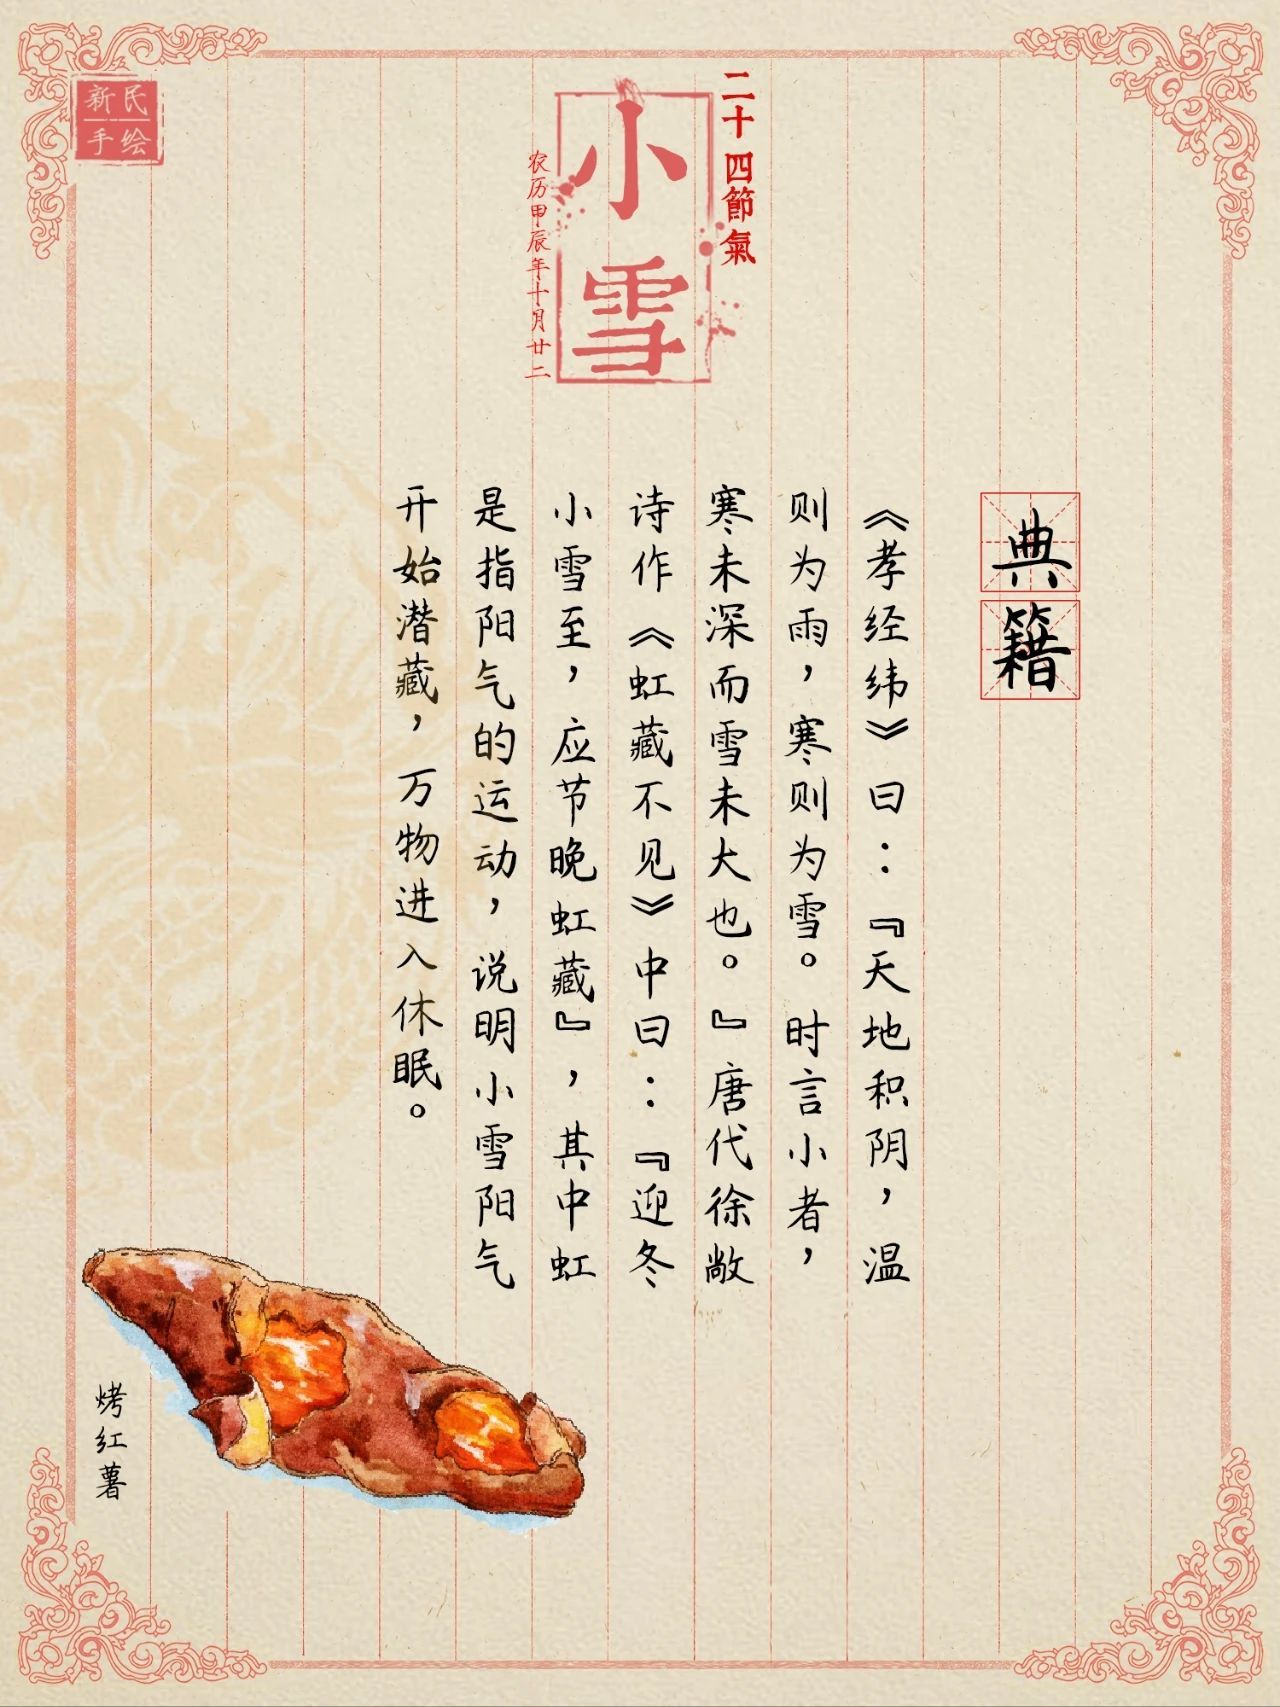 新民
手绘
二十四節氣
小雪
农历甲辰年十月廿二
典籍
《孝经纬》曰：『天地积阴，温
则为雨，寒则为雪。时言小者，
寒未深而雪未大也。』唐代徐敞
诗作《虹藏不见》中曰：『迎冬
小雪至，应节晚虹藏』，其中虹
是指阳气的运动，说明小雪阳气
开始潜藏，万物进入休眠。
烤红薯